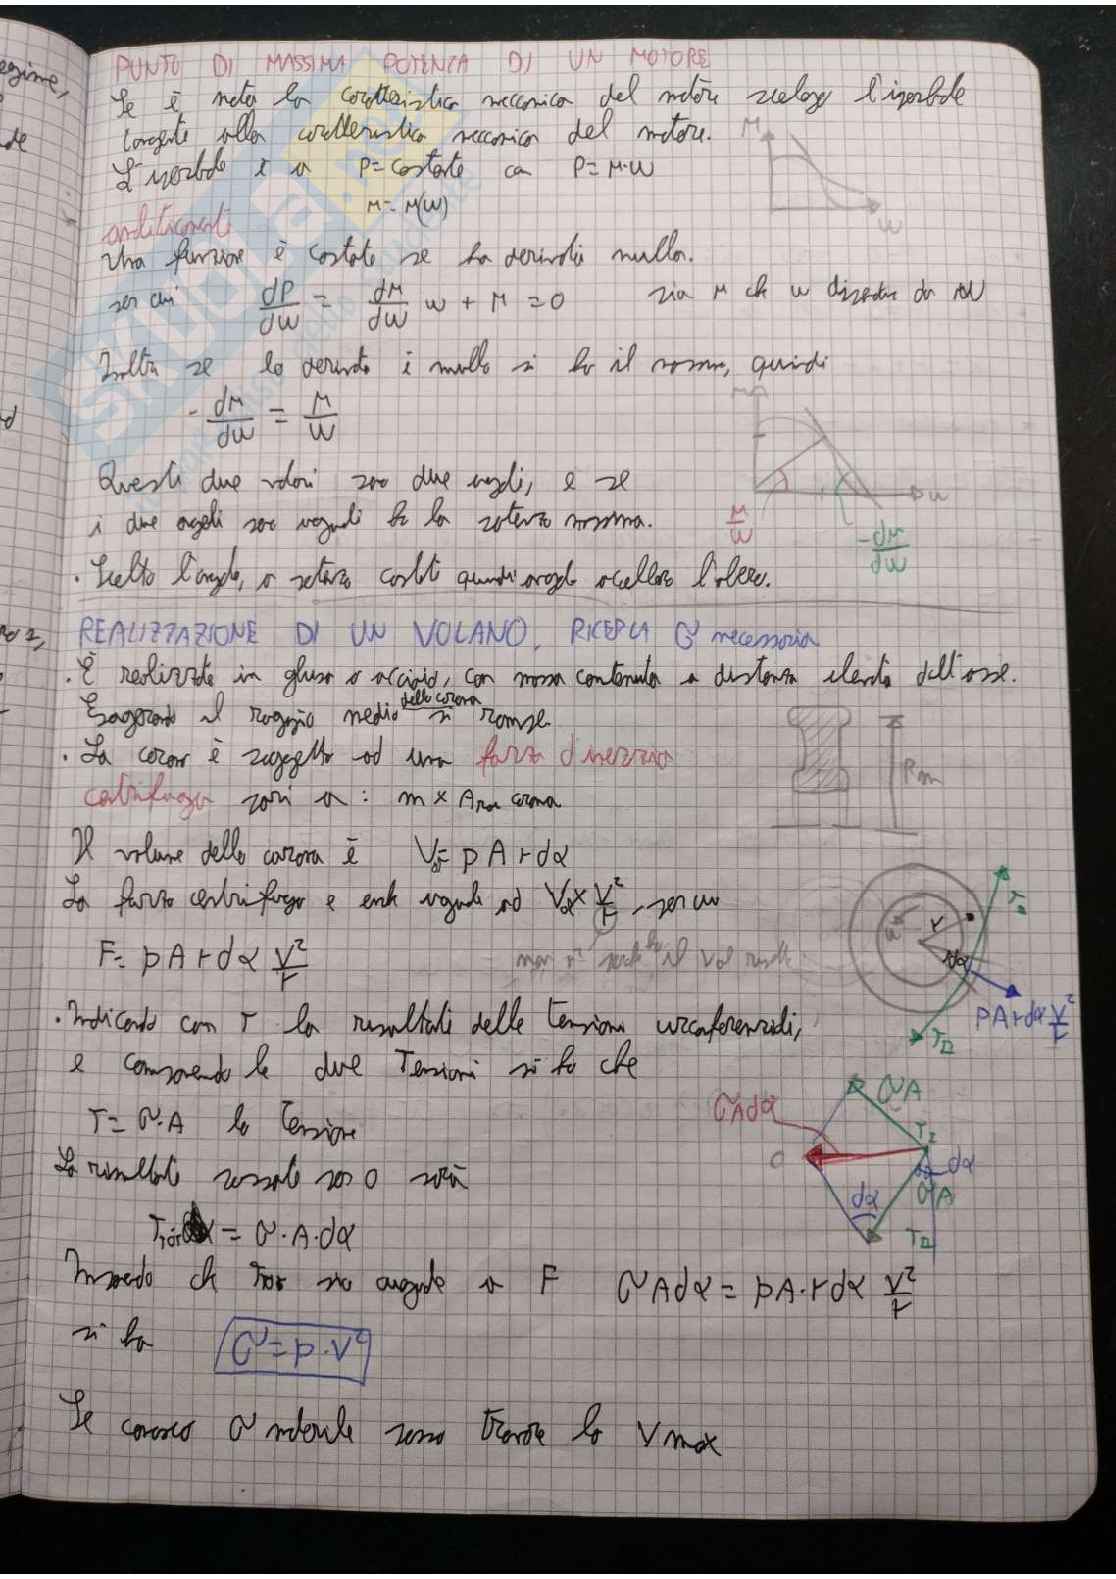 PUNTO DI MASSIMA POTENZA DI UN MOTORE
Se è nota la caratteristica meccanica del motore scelgo l'iperbole
tangente alla caratteristica meccanica del motore.
L'iperbole è a P=costante con P=M·W
M=M(W)
analiticamente
Una funzione è costante se ha derivata nulla.
per cui dP/dW = dM/dW W + M = 0 sia M che W dipendono da
Inoltre se la derivata è nulla si ha il massimo, quindi
- dM/dW = M/W
Questi due valori sono due angoli, e se
i due angoli sono uguali ho la potenza massima.
M
W
M
W
M/W
-dM/dW
· Scelto l'angolo, a potenza costante quindi accellero l'albero.
REALIZZAZIONE DI UN VOLANO, RICERCA σ necessaria
· È realizzato in ghisa o acciaio, con massa contenuta a distanza elevata dall'asse.
Esagerando il raggio medio della corona si rompe
· La corona è soggetta ad una forza d'inerzia
centrifuga pari a: m x Area corona
Rm
Il volume della corona è V= ρ A r dα
La forza centrifuga è uguale ad V x V²/r, per cui
F= ρ A r dα V²/r
· Indicando con T la risultante delle tensioni circonferenziali,
e componendo le due Tensioni si ha che
T= σ·A la tensione
La risultante passante per O sarà
= σ·A·dα
T
r
dα
ρAr dα V²/r
σAdα
σA
O
dα
dα
σA
Imponendo che sia uguale a F σAdα = ρA·r dα V²/r
si ha σ=ρ·V²
Se conosco σ materiale posso trovare la Vmax